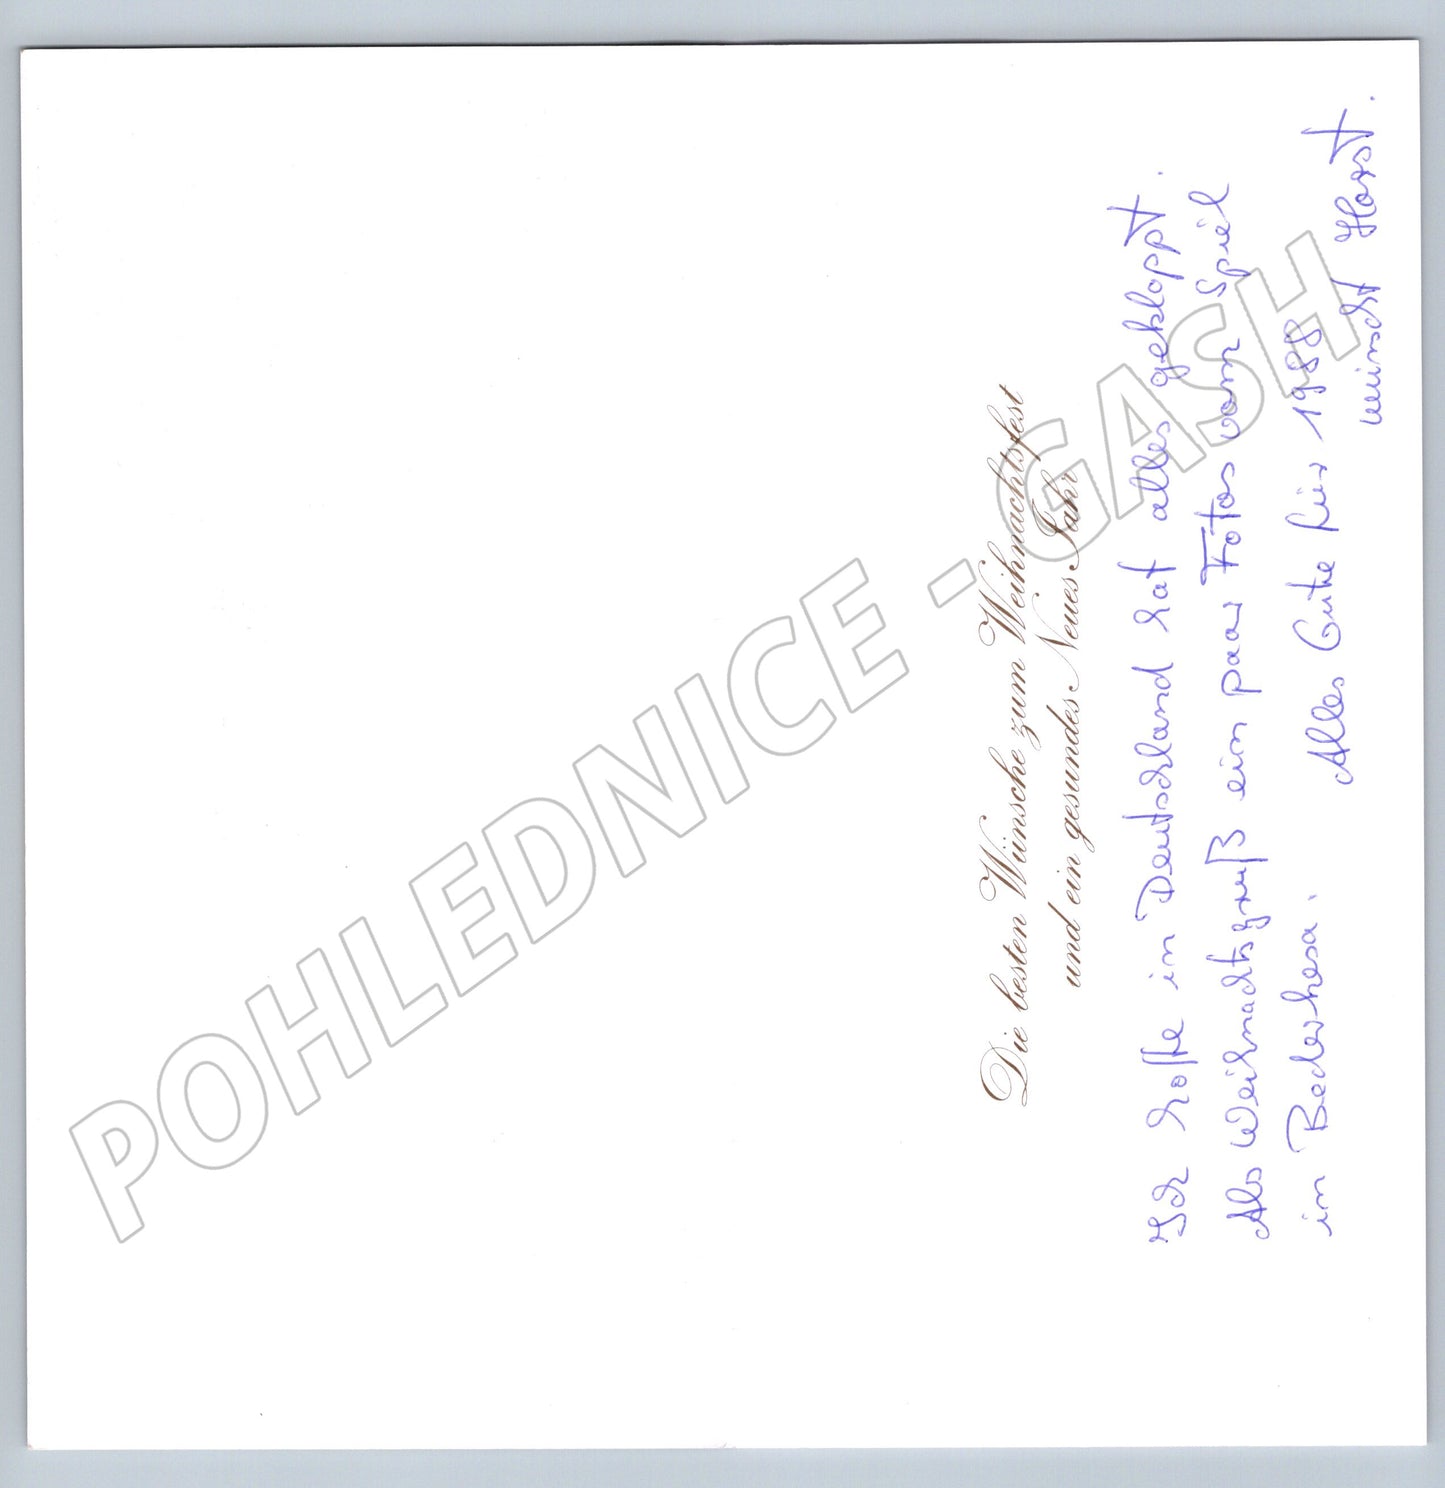 Die besten Wünsche zum Weihnachtsfest
und ein gesundes Neues Jahr
Ich hoffe in Deutschland hat alles gekloppt.
Als Weihnachtsgruß ein paar Fotos vom Spiel
in Bederkesa.
Alles Gute für 1988
wünscht Horst.
POHLEDNICE - GASH